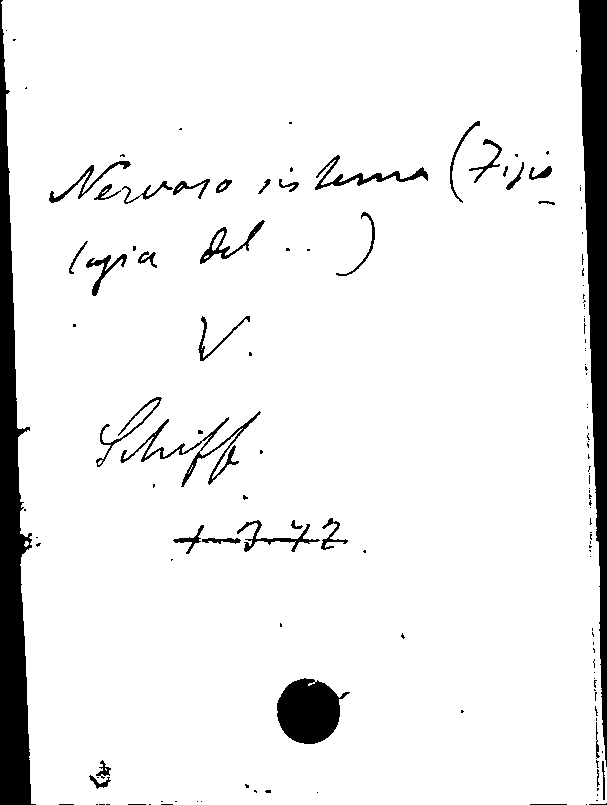 Nervoso sistema (Fisio
logia del ..)
V.
Schiff.
1342